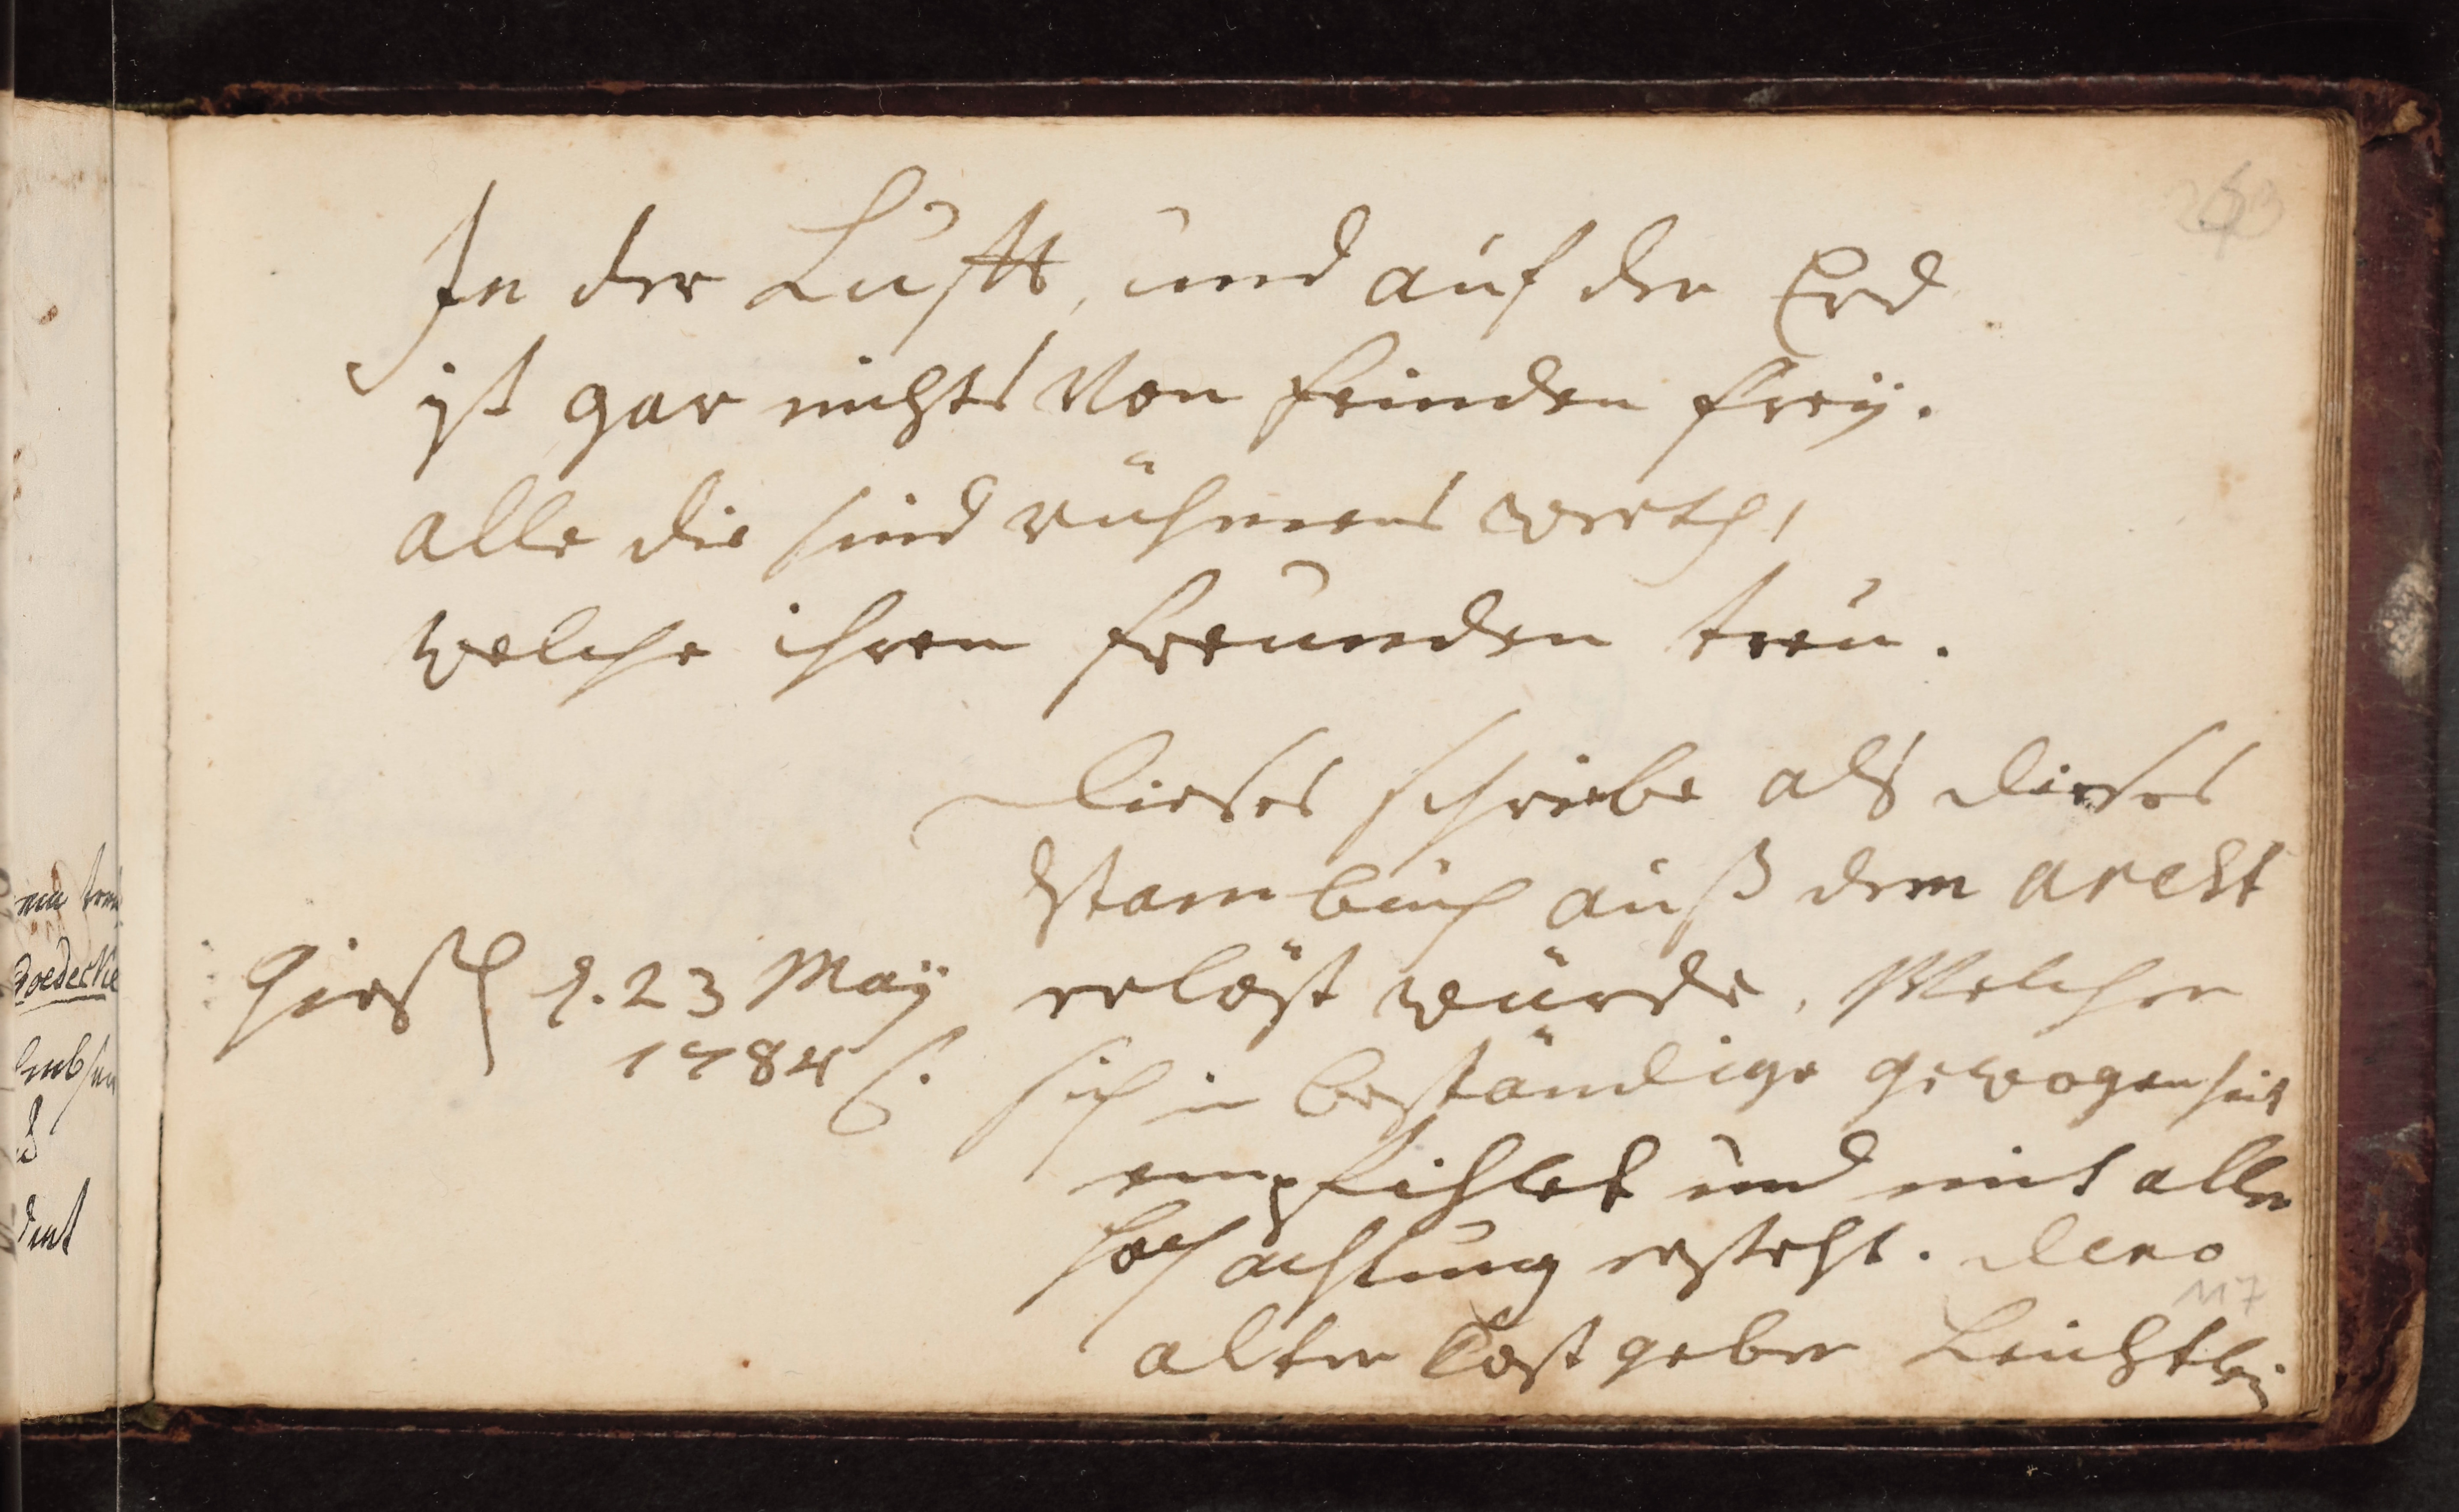 263
In der Lufft, und auf der Erd
ist gar nichts von feinden freÿ.
alle die sind rühmens werth,
welche ihren freunden treu.
Dieses schriebe als dieses
Stambuch auß dem arest
erlöst würde, Welcher
sich in beständige gewogenheit
empfihlet und mit aller
hochachtung ersteht. Dero
alter Cost geber Leichtlein
Giesß d. 23 Maÿ
1784
117